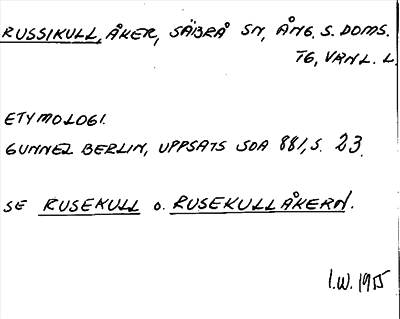 RUSSIKULL, ÅKER, SÄBRÅ SN, ÅNG. S. DOMS.
TG, VÄNL. L.
ETYMOLOGI.
GUNNEL BERLIN, UPPSATS SOA 881, S. 23.
SE RUSEKULL O. RUSEKULLÅKERN.
I.W. 1955